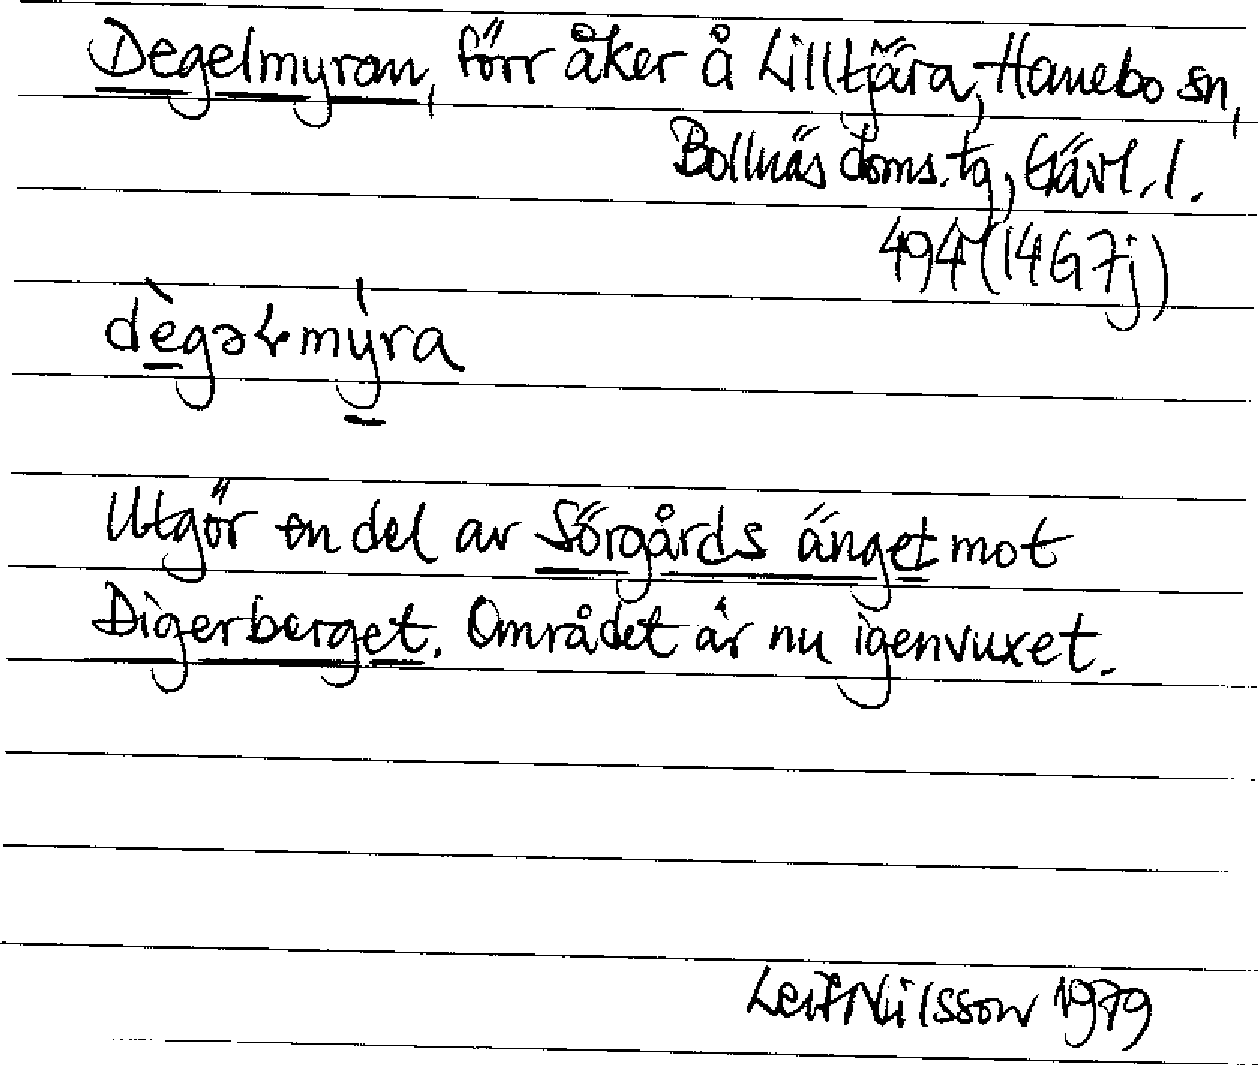 Degelmyran, förr åker å Lilltjära, Hanebo sn,
Bollnäs doms. tg, Gävl. l.
494 (14G 7j)
dègəɫmýra
Utgör en del av Sörgårdsänget mot
Digerberget. Området är nu igenvuxet.
Leif Nilsson 1979